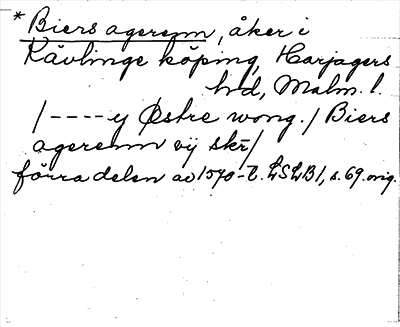 * Biers agerenn, åker i
Kävlinge köping, Harjagers
hd, Malm. l.
/----y Østre wong. / Biers
agerenn vij skr/
förra delen av 1570-t. LSLB 1, s. 69. orig.